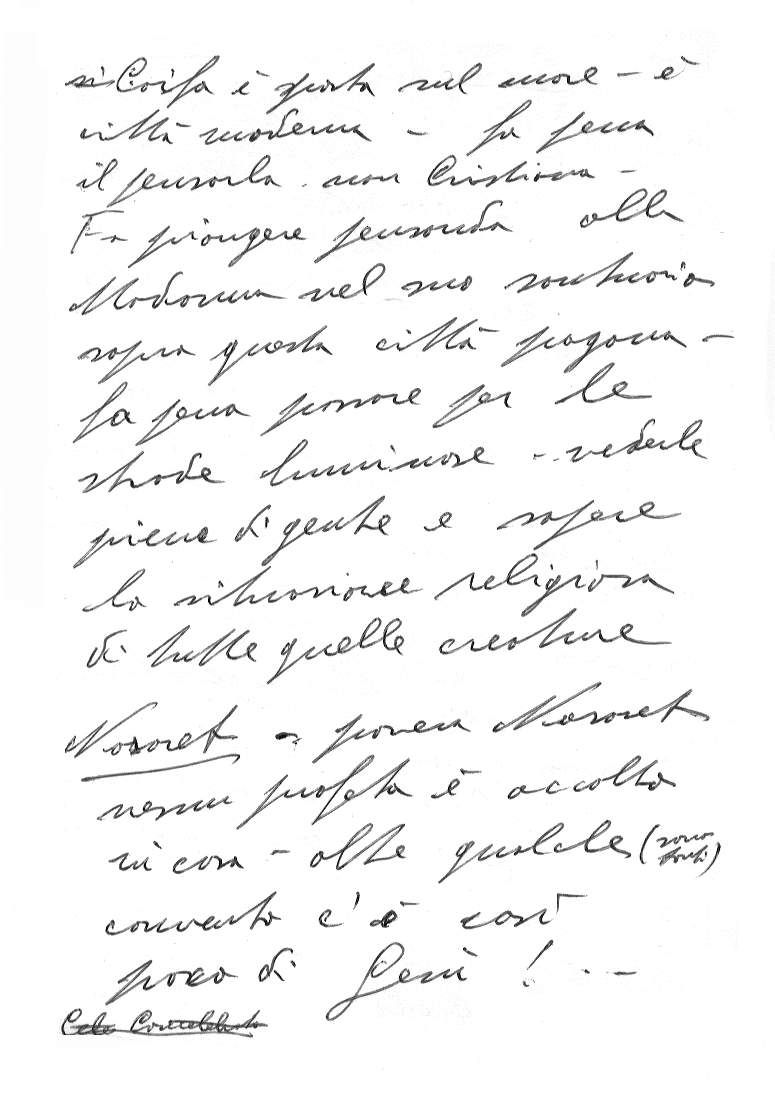 Caifa è posta sul mare – è
città moderna – fa pena
il pensarla non Cristiana –
Fa piangere pensando alla
Madonna nel suo santuario
sopra questa città pagana –
fa pena passare per le
strade luminose – vederle
piene di gente e sapere
la situazione religiosa
di tutte quelle creature
Nazaret – povera Nazaret
nessun profeta è accolto
in casa – oltre qualche (sono tanti)
convento c'è così
poco di Gesù! . . –